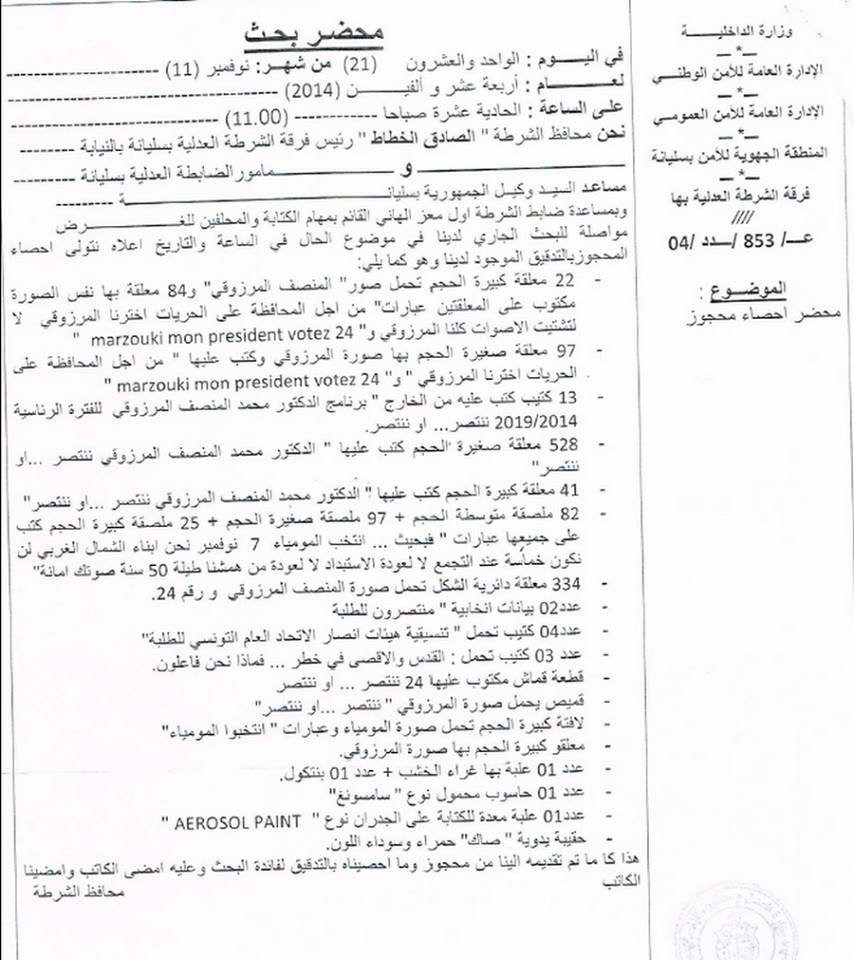 وزارة الداخليـــــــة
ـــ*ـــ
الإدارة العامة للأمن الوطنـــي
ـــ*ـــ
الإدارة العامة للأمن العمومي
ـــ*ـــ
المنطقة الجهوية للأمن بسليانة
ـــ*ـــ
فرقة الشرطة العدلية بها
////
عـــ/ 853 /ـــدد /04
الموضـــوع :
محضر احصاء محجوز
محضر بحث
في اليـــــوم : الواحد والعشرون (21) من شهـر: نوفمبر (11) --------------------
لعـــــــــام : أربعة عشر و ألفيـــــن (2014) --------------------
على الساعة : الحادية عشرة صباحا ------------ (11.00) --------------------
نحن محافظ الشرطة " الصادق الخطاط " رئيس فرقة الشرطة العدلية بسليانة بالنيابة ---------
ــــــــــــــــــــــ و ــــــــــــــــــ مامور الضابطة العدلية بسليانة ---------
مساعد السيد وكيل الجمهورية بسليانـــــــــــــــــــــــــــة ---------
وبمساعدة ضابط الشرطة اول معز الهاني القائم بمهام الكتابة والمحلفين للغـــــــرض
مواصلة للبحث الجاري لدينا في موضوع الحال في الساعة والتاريخ اعلاه نتولى احصاء
المحجوزبالتدقيق الموجود لدينا وهو كما يلي:
- 22 معلقة كبيرة الحجم تحمل صور" المنصف المرزوقي" و84 معلقة بها نفس الصورة
مكتوب على المعلقتين عبارات" من اجل المحافظة على الحريات اخترنا المرزوقي لا
لتشتيت الاصوات كلنا المرزوقي و" marzouki mon president votez 24 "
- 97 معلقة صغيرة الحجم بها صورة المرزوقي وكتب عليها " من اجل المحافظة على
الحريات اخترنا المرزوقي " و" marzouki mon president votez 24 "
- 13 كتيب كتب عليه من الخارج " برنامج الدكتور محمد المنصف المرزوقي للفترة الرئاسية
2019/2014 ننتصر... او ننتصر.
- 528 معلقة صغيرة الحجم كتب عليها " الدكتور محمد المنصف المرزوقي ننتصر ...او
ننتصر"
- 41 معلقة كبيرة الحجم كتب عليها " الدكتور محمد المنصف المرزوقي ننتصر ...او ننتصر"
- 82 ملصقة متوسطة الحجم + 97 ملصقة صغيرة الحجم + 25 ملصقة كبيرة الحجم كتب
على جميعها عبارات " فبحيث ... انتخب المومياء 7 نوفمبر نحن ابناء الشمال الغربي لن
نكون خماسة عند التجمع لا لعودة الاستبداد لا لعودة من همشنا طيلة 50 سنة صوتك امانة"
- 334 معلقة دائرية الشكل تحمل صورة المنصف المرزوقي و رقم 24.
- عدد02 بيانات انخابية " منتصرون للطلبة
- عدد04 كتيب تحمل " تنسيقية هيئات انصار الاتحاد العام التونسي للطلبة"
- عدد 03 كتيب تحمل : القدس والاقصى في خطر ... فماذا نحن فاعلون.
- قطعة قماش مكتوب عليها 24 ننتصر ... او ننتصر
- قميص يحمل صورة المرزوقي " ننتصر ...او ننتصر"
- لافتة كبيرة الحجم تحمل صورة المومياء وعبارات " انتخبوا المومياء"
- معلقو كبيرة الحجم بها صورة المرزوقي.
- عدد 01 علبة بها غراء الخشب + عدد 01 بنتكول.
- عدد 01 حاسوب محمول نوع " سامسونغ"
- عدد01 علبة معدة للكتابة على الجدران نوع " AEROSOL PAINT "
- حقيبة يدوية " صاك" حمراء وسوداء اللون.
هذا كا ما تم تقديمه الينا من محجوز وما احصيناه بالتدقيق لفائدة البحث وعليه امضى الكاتب وامضينا
الكاتب محافظ الشرطة